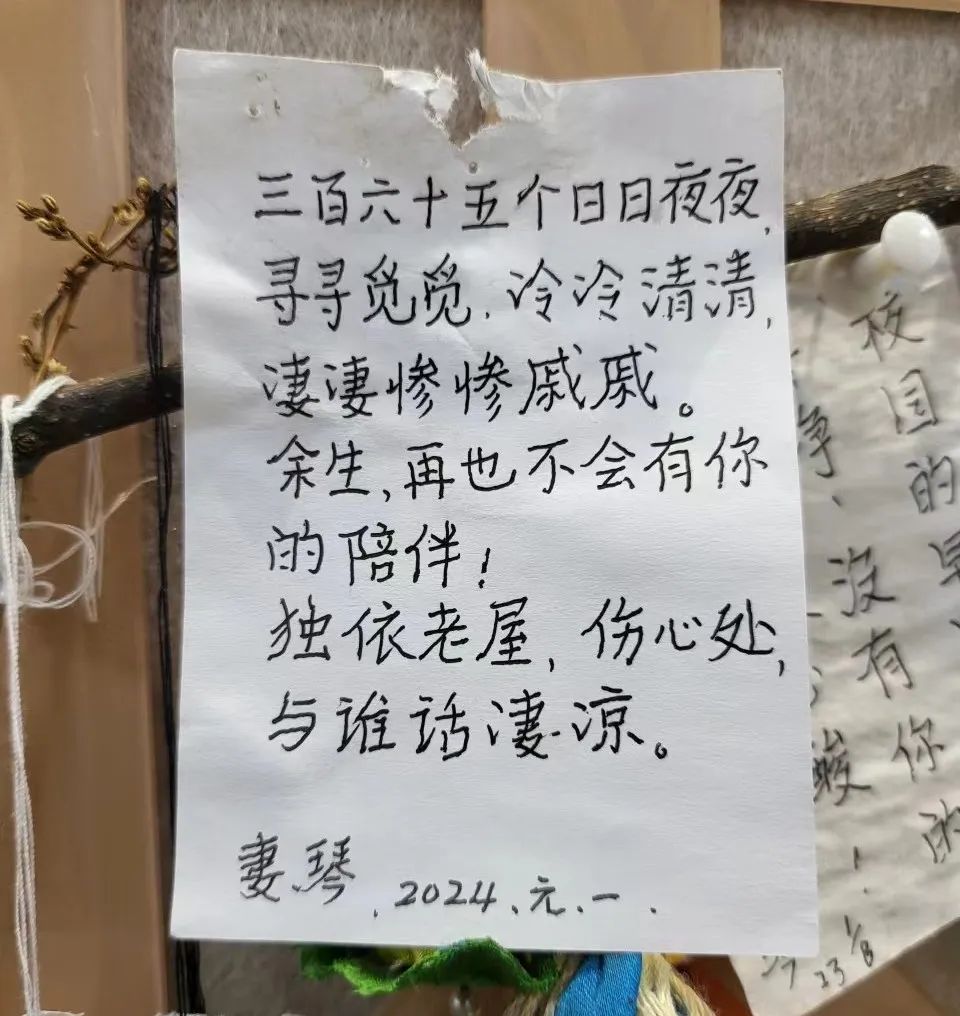 三百六十五个日日夜夜,
寻寻觅觅.冷冷清清,
凄凄惨惨戚戚。
余生,再也不会有你
的陪伴!
独依老屋,伤心处,
与谁话凄凉。
妻.琴.2024.元.一.
夜园的
早、
没有你
的
酸
!
23 1/8